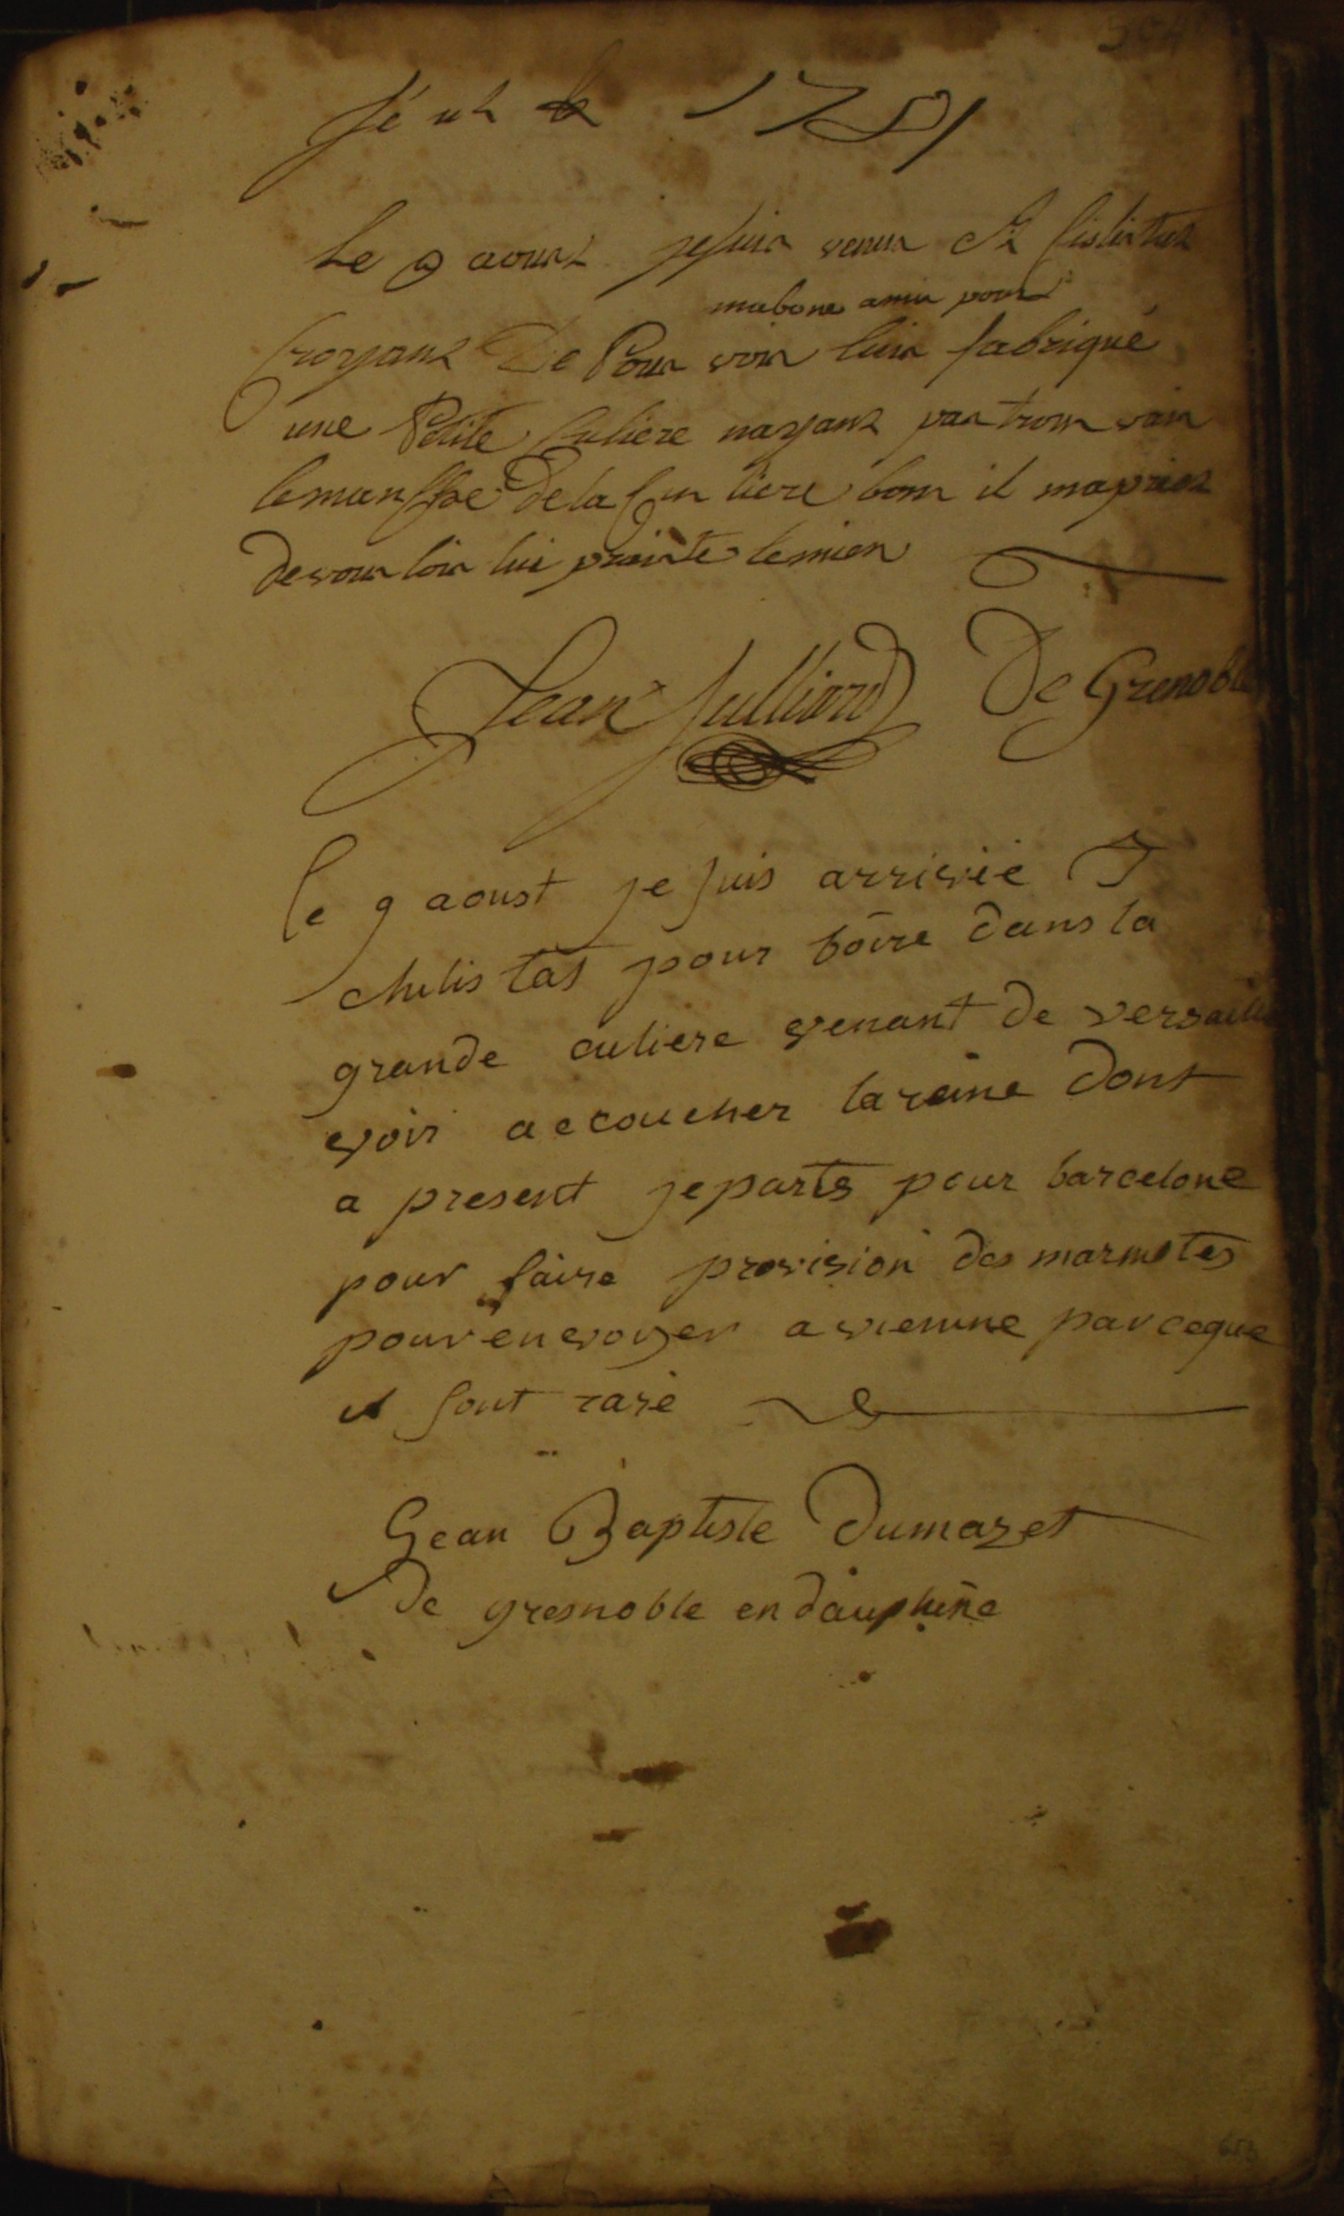 1781
Le 9 aoust je suis venu
mabone amie pour
Croyant De Pour voir luis fabriqué
une Petite Culiere nayant pas trouvais
lemanshe De la Cuu liere bom il maprier
de vouu loir lui praite lemien
Jean Julliard De Grenoble
le 9 aoust je suis arrivée
chelis tat pour boire dans la
grande culiere venant de versaille
voir accoucher lareine dont
a present jeparts pour barcelone
pour faire provision des marmotes
pour envoyer a vienne parceque
il sont rare
Gean Baptiste dumazet
De gresnoble en dauphine